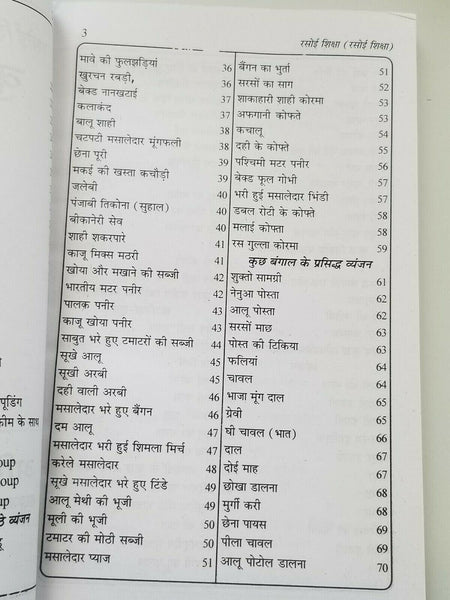 3
रसोई शिक्षा (रसोई शिक्षा)
मावे की फुलझड़ियां 36
खुरचन रबड़ी, 36
बेक्ड नानखटाई 37
कलाकंद 37
बालू शाही 38
चटपटी मसालेदार मूंगफली 38
छेना पूरी 39
मकई की खस्ता कचौड़ी 39
जलेबी 40
पंजाबी तिकोना (सुहाल) 40
बीकानेरी सेव 40
शाही शकरपारे 41
काजू मिक्स मठरी 41
खोया और मखाने की सब्जी 42
भारतीय मटर पनीर 42
पालक पनीर 43
काजू खोया पनीर 43
साबुत भरे हुए टमाटरों की सब्जी 44
सूखे आलू 44
सूखी अरबी 45
दही वाली अरबी 45
मसालेदार भरे हुए बैंगन 46
दम आलू 47
मसालेदार भरी हुई शिमला मिर्च 47
करेले मसालेदार 48
सूखे मसालेदार भरे हुए टिंडे 49
आलू मेथी की भूजी 49
मूली की भूजी 50
टमाटर की मोठी सब्जी 50
मसालेदार प्याज 51
बैंगन का भुर्ता 51
सरसों का साग 52
शाकाहारी शाही कोरमा 53
अफगानी कोफ्ते 53
कचालू 54
दही के कोफ्ते 55
पश्चिमी मटर पनीर 56
बेक्ड फूल गोभी 57
भरी हुई मसालेदार भिंडी 57
डबल रोटी के कोफ्ते 58
मलाई कोफ्ता 58
रस गुल्ला कोरमा 59
कुछ बंगाल के प्रसिद्ध व्यंजन
शुक्तो सामग्री 61
नेनुआ पोस्ता 62
आलू पोस्ता 62
सरसों माछ 63
पोस्त की टिकिया 63
फलियां 64
चावल 64
भाजा मूंग दाल 65
ग्रेवी 66
घी चावल (भात) 66
दाल 66
दोई माह 67
छोखा डालना 68
मुर्गी करी 68
छेना पायस 69
पीला चावल 69
आलू पोटोल डालना 70
पूडिंग
क्रीम के साथ
oup
oup
up
व्यंजन